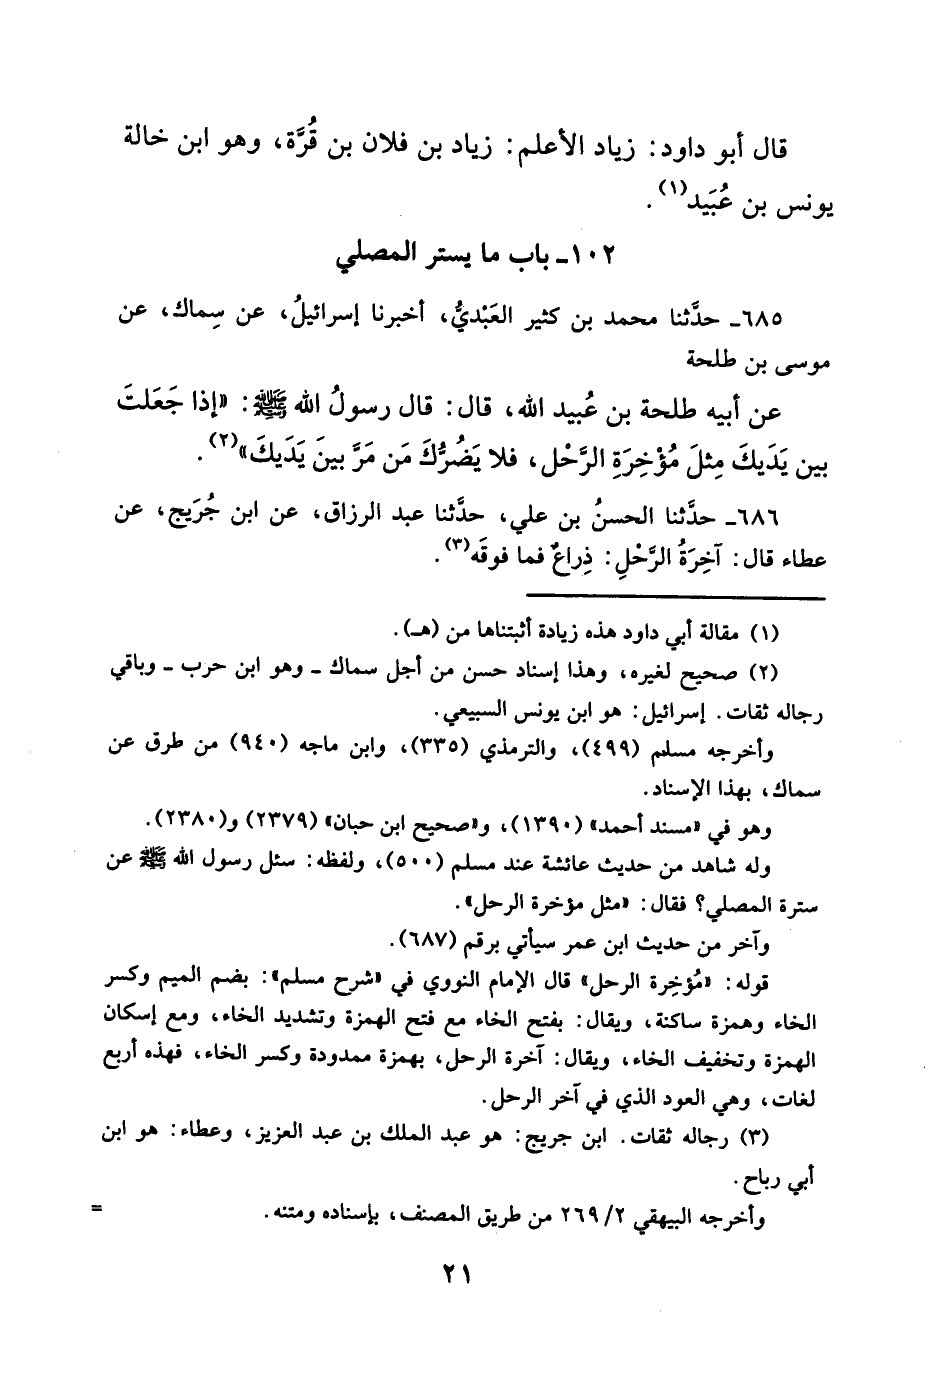 قال أبو داود: زياد الأعلم: زياد بن فلان بن قُرَّة، وهو ابن خالة
يونس بن عُبَيد(١).
١٠٢ـ باب ما يستر المصلي
٦٨٥ـ حدَّثنا محمد بن كثير العَبْديُّ، أخبرنا إسرائيلُ، عن سِماك، عن
موسى بن طلحة
عن أبيه طلحة بن عُبيد الله، قال: قال رسولُ الله ﷺ: «إذا جَعَلتَ
بين يَدَيكَ مِثلَ مُؤْخِرَةِ الرَّحْل، فلا يَضُرُّكَ مَن مَرَّ بينَ يَدَيكَ»(٢).
٦٨٦ـ حدَّثنا الحسنُ بن علي، حدَّثنا عبد الرزاق، عن ابن جُرَيج، عن
عطاء قال: آخِرَةُ الرَّحْلِ: ذِراعٌ فما فوقَه(٣).
(١) مقالة أبي داود هذه زيادة أثبتناها من (هـ).
(٢) صحيح لغيره، وهذا إسناد حسن من أجل سماك ـ وهو ابن حرب ـ وباقي
رجاله ثقات. إسرائيل: هو ابن يونس السبيعي.
وأخرجه مسلم (٤٩٩)، والترمذي (٣٣٥)، وابن ماجه (٩٤٠) من طرق عن
سماك، بهذا الإسناد.
وهو في «مسند أحمد» (١٣٩٠)، و«صحيح ابن حبان» (٢٣٧٩) و(٢٣٨٠).
وله شاهد من حديث عائشة عند مسلم (٥٠٠)، ولفظه: سئل رسول الله ﷺ عن
سترة المصلي؟ فقال: «مثل مؤخرة الرحل».
وآخر من حديث ابن عمر سيأتي برقم (٦٨٧).
قوله: «مُؤخِرة الرحل» قال الإمام النووي في «شرح مسلم»: بضم الميم وكسر
الخاء وهمزة ساكنة، ويقال: بفتح الخاء مع فتح الهمزة وتشديد الخاء، ومع إسكان
الهمزة وتخفيف الخاء، ويقال: آخرة الرحل، بهمزة ممدودة وكسر الخاء، فهذه أربع
لغات، وهي العود الذي في آخر الرحل.
(٣) رجاله ثقات. ابن جريج: هو عبد الملك بن عبد العزيز، وعطاء: هو ابن
أبي رباح.
وأخرجه البيهقي ٢/ ٢٦٩ من طريق المصنف، بإسناده ومتنه. =
٢١